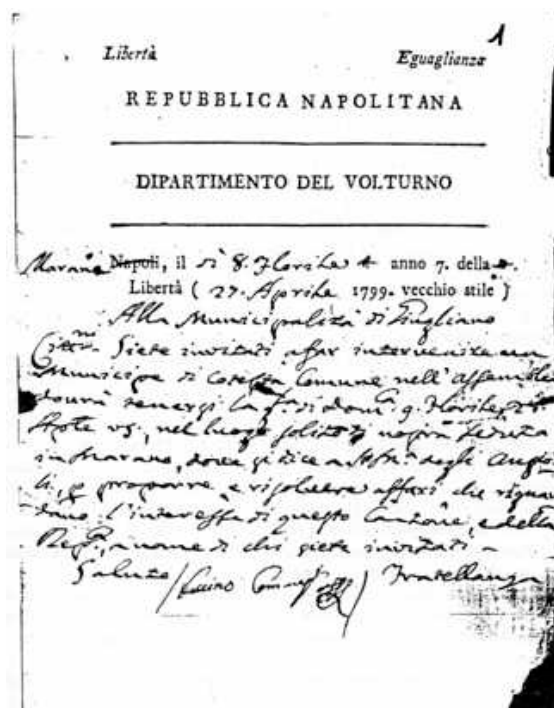 1
Libertà Eguaglianza
REPUBBLICA NAPOLITANA
DIPARTIMENTO DEL VOLTURNO
Marano Napoli, il dì 8. Florile anno 7. della
Libertà ( 27. Aprile 1799. vecchio stile )
Alla Municipalità di Giugliano
Siete invitati a far intervenire un
Municipe di cotesta Comune nell'Assemblea
dovrà tenersi 9. Florile
nel luogo solito di nostra seduta
in Marano, dove si dice degli Angio
li, proporre, e risolvere affari che riguar
dano l'interesse di questo Cantone, e della
a nome di chi siete invitati
Salute Fratellanza